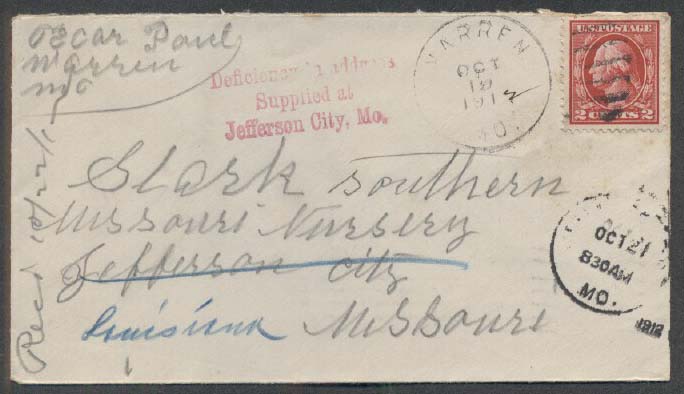 Oscar Paul
Warren
Mo
Deficiency in address
Supplied at
Jefferson City, Mo.
WARREN
OCT
19
1912
MO.
U.S. POSTAGE
2 CENTS 2
Stark southern
Missouri Nursery
Jefferson city
Louisiana Missouri
OCT 21
830AM
MO.
1912
Recd 10/22/1